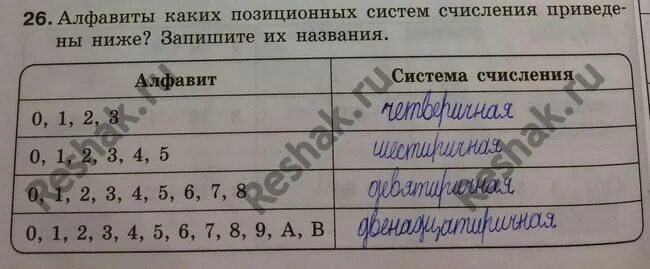 26. Алфавиты каких позиционных систем счисления приведе-
ны ниже? Запишите их названия.
Алфавит Система счисления
0, 1, 2, 3 четверичная
0, 1, 2, 3, 4, 5 шестиричная
0, 1, 2, 3, 4, 5, 6, 7, 8 девятиричная
0, 1, 2, 3, 4, 5, 6, 7, 8, 9, A, B двенадцатиричная
Reshak.ru
Reshak.ru
Reshak.ru